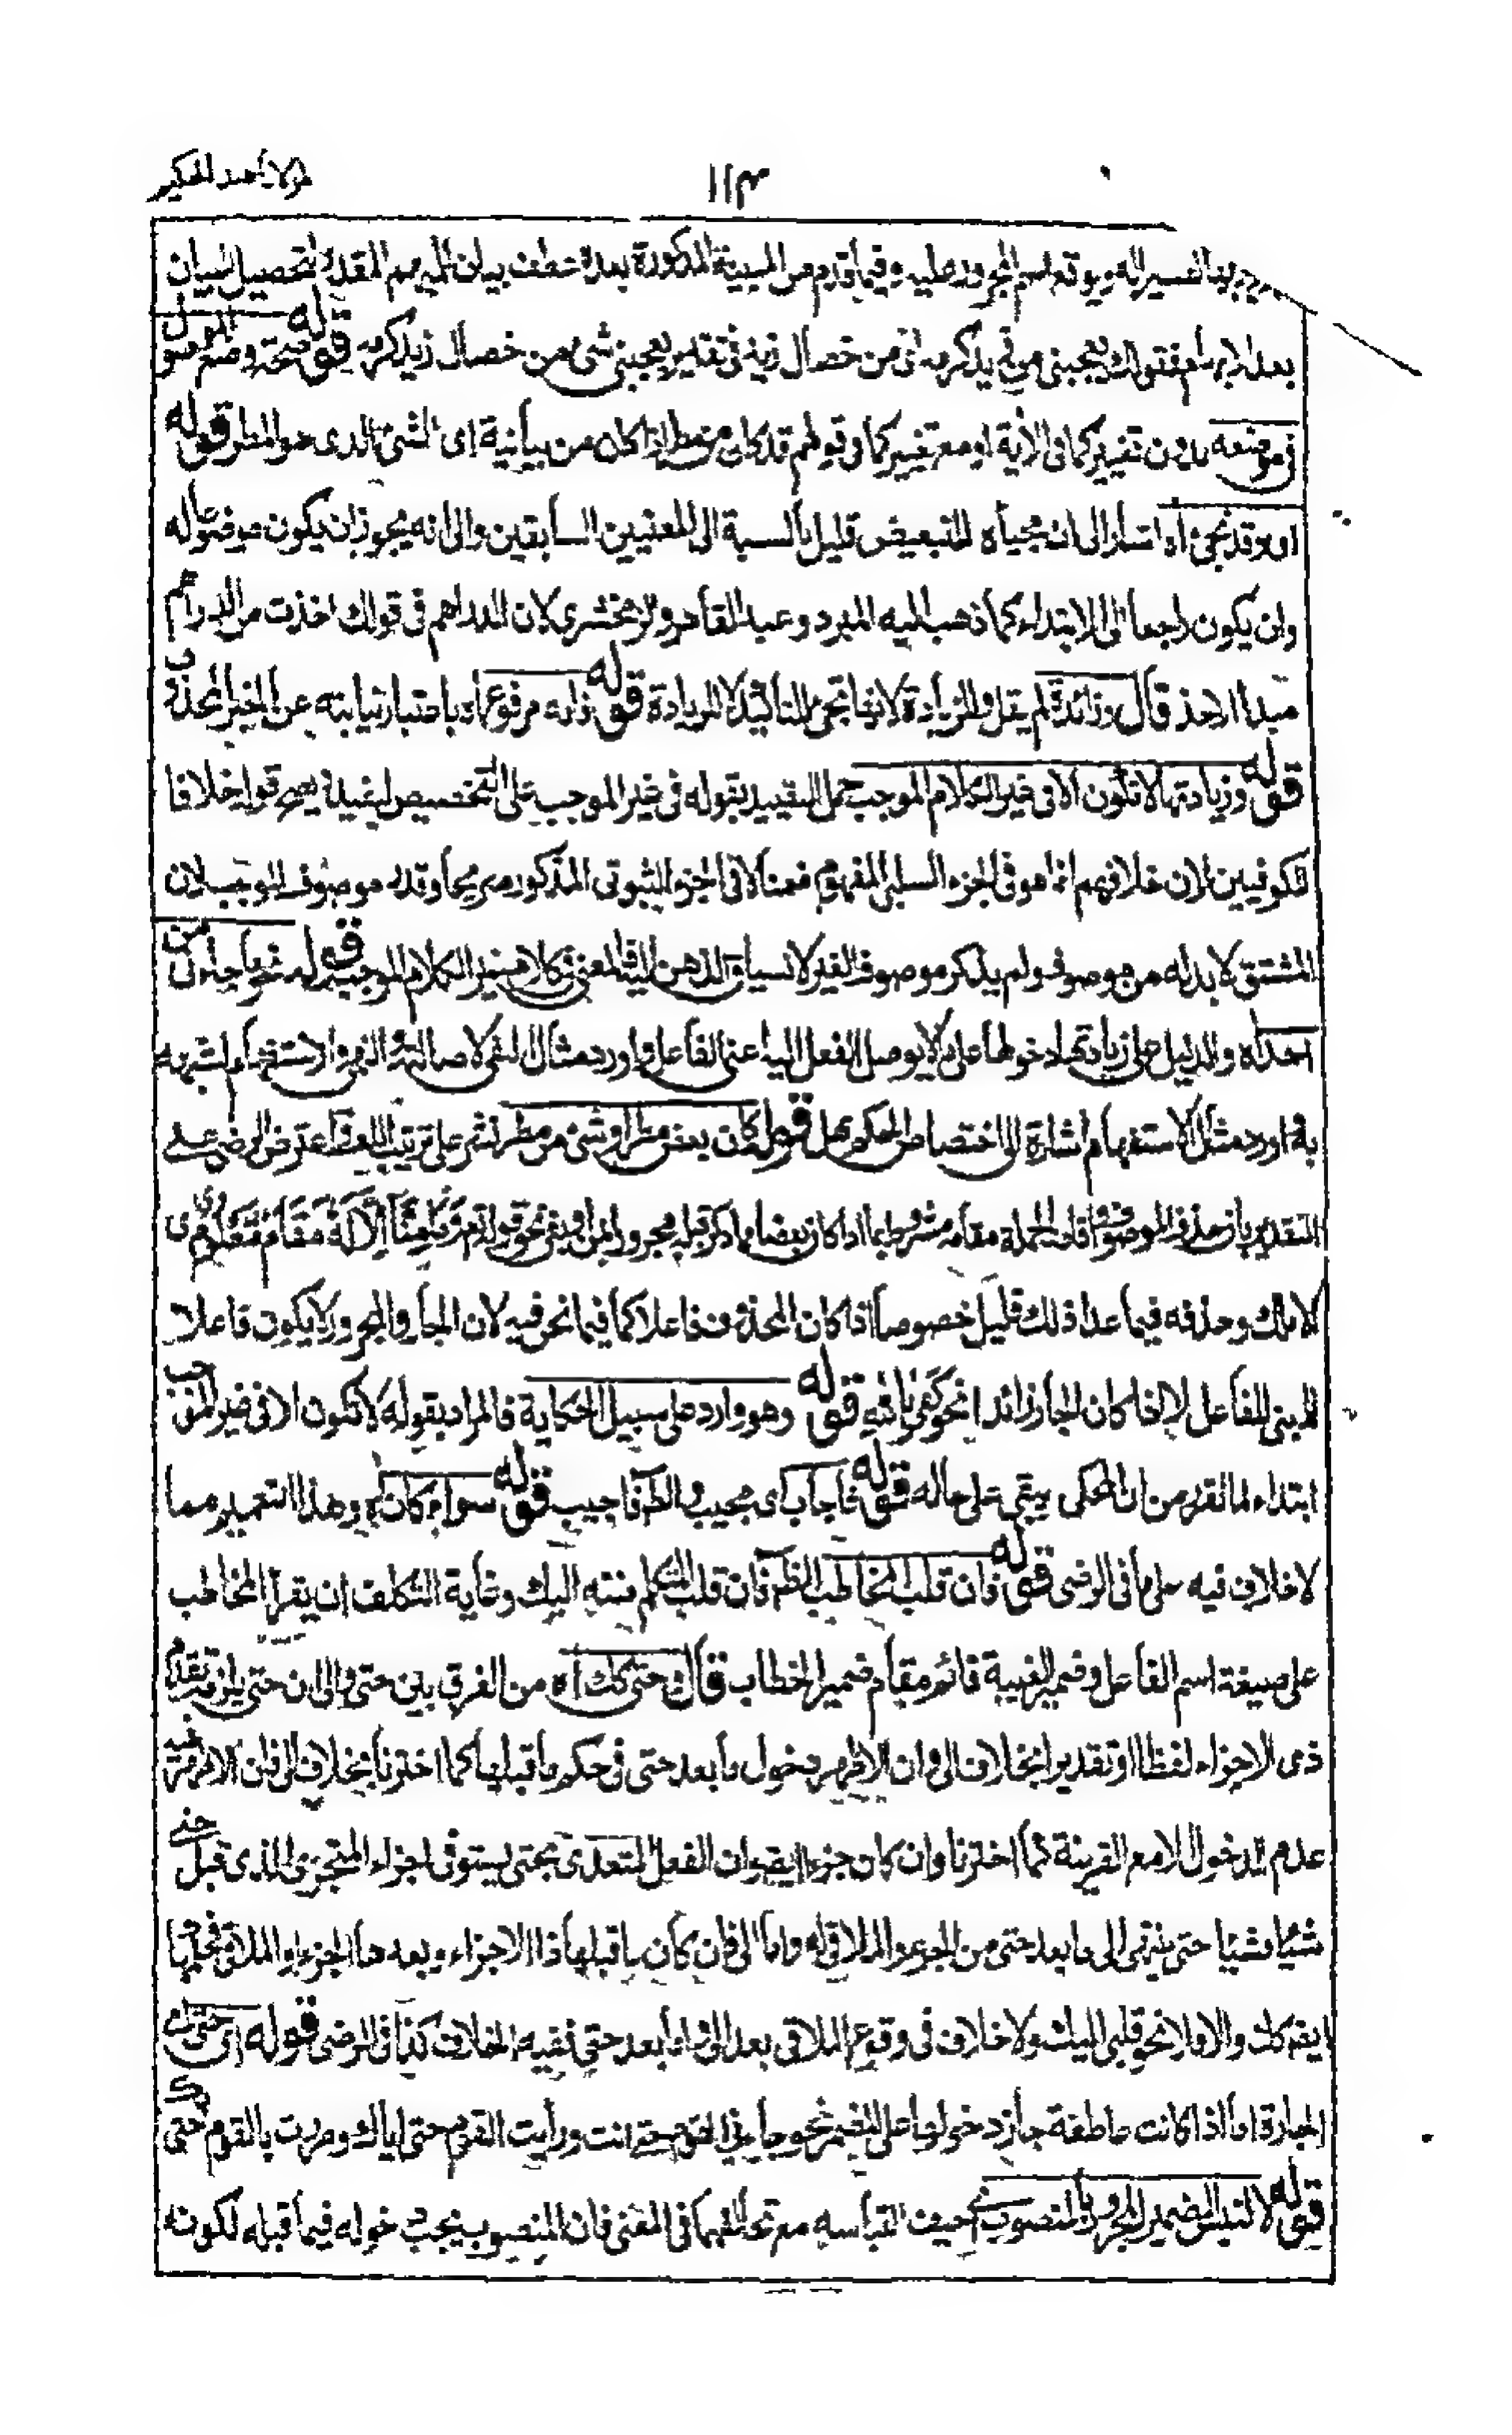 مولانا عبد الحكيم
١١٣
بها تفسيرا له ويوقع اسم المجرور عليه وفيما تقدم من المبينة المذكورة بعده عطف بيان للمبهم المقدر لتحصيل البيان
بعد الابهام فقولك يعجبني من زيد كرمه اى من خصال زيد فى تقدير يعجبني شئ من خصال زيد كرمه قوله صحة وضع الموصول
فى موضعه بدون تغيير كما فى الأية او مع تغيير كما فى قولهم قد كان من مطر اذا كان من بيانية اى الشئ الذى هو المطر قوله
وقد تجئ اه اشار الى ان مجيأه للتبعيض قليل بالنسبة الى المعنيين السابقين والى انه يجوز ان يكون موضوعا له
وان يكون راجعا الى الابتداء كما ذهب اليه المبرد وعبد القاهر والزمخشرى لان الدراهم فى قولك اخذت من الدراهم
مبدأ الاخذ قال وزائدة لم يقل وللزيادة لانها تجئ للتاكيد لا للزيادة قوله زاده مرفوعا اه باعتبار نيابته عن الخبر المحذوف
قوله وزيادتها لا تكون الا فى غير الكلام الموجب حمل التقييد بقوله فى غير الموجب على التخصيص ليفيد يصح قوله خلافا
للكوفيين لان خلافهم انما هو فى الجزء السلبى المفهوم ضمنا لا فى الجزء الثبوتى المذكور صريحا وقدر موصوف الموجب لان
المشتق لا بد له من موصوف ولم يذكر موصوف الغير لانسياق الذهن الى ان المعنى فى كلام غير الكلام الموجب قوله نحو ما جاءنى من
احد اه والدليل على زيادتها دخولها على ما لا يوصل الفعل اليه اعنى الفاعل واورد مثال النفى لاصالته والنهى والاستفهام لشبهه
به اورد مثال الاستفهام اشارة الى اختصاص الحكم بهل قوله كان بعض مطر او شئ من مطر نشر على ترتيب اللف اعترض الرضى على
التقدير بان حذف الموصوف واقامة الجملة مقامه مشروط بما اذا كان بعضا مما ذكر قبله مجرورا بمن او بفى نحو قولهم وَمَا مِنَّا اِلَّا لَهٗ مَقَامٌ مَّعْلُوْمٌ
لا ملك وحذفه فيما عدا ذلك قليل خصوصا اذا كان المحذوف فاعلا كما فيما نحن فيه لان الجار والمجرور لا يكون فاعلا
للمبنى للفاعل الا اذا كان الجار زائدا نحو كَفٰى بِاللهِ قوله وهو وارد على سبيل الحكاية فالمراد بقوله لا تكون الا فى غير الموجب
ابتداء لما تقرر من ان المحكى يبقى على حاله قوله فاجاب اى مجيب والظ فاجيب قوله سواء كان اه وهذا التعميم مما
لا خلاف فيه على ما فى الرضى قوله فان قلب المخاطب الظ فان قلب المتكلم منته اليك وغاية التكلف ان يقرأ المخاطب
على صيغة اسم الفاعل وضمير الغيبة قائم مقام ضمير الخطاب قال وحتى كك اه من الفرق بين حتى والى ان حتى يلزمه تقدم
ذى الاجزاء لفظا او تقديرا بخلاف الى وان الاظهر دخول ما بعد حتى فى حكم ما قبلها كما اخترنا بخلاف الى فان الاظهر فيه
عدم الدخول الا مع القرينة كما اخترنا وان كان جزءا ايضا وان الفعل المتعدى بحتى يستوفى اجزاء المتجزى الذى قبل حتى
شيئا فشيئا حتى ينتهى الى ما بعد حتى من الجزء او الملاقى له واما الى فان كان ما قبلها ذا الاجزاء وبعدها الجزء او الملاقى فحكمها
ايضا كك والا فلا نحو قلبى اليك ولا خلاف فى وقوع الملاقى بعد الى واما بعد حتى ففيه الخلاف كذا فى الرضى قوله اى حتى اه
الجارة اما اذا كانت عاطفة جاز دخولها على الضمير نحو جاءنى القوم حتى انت ورأيت القوم حتى اياك ومررت بالقوم حتى بك
قوله لا لتبس الضمير المجرور بالمنصوب حيث التباسه مع تخالفهما فى المعنى فان المنصوب يجب دخوله فيما قبله لكونه